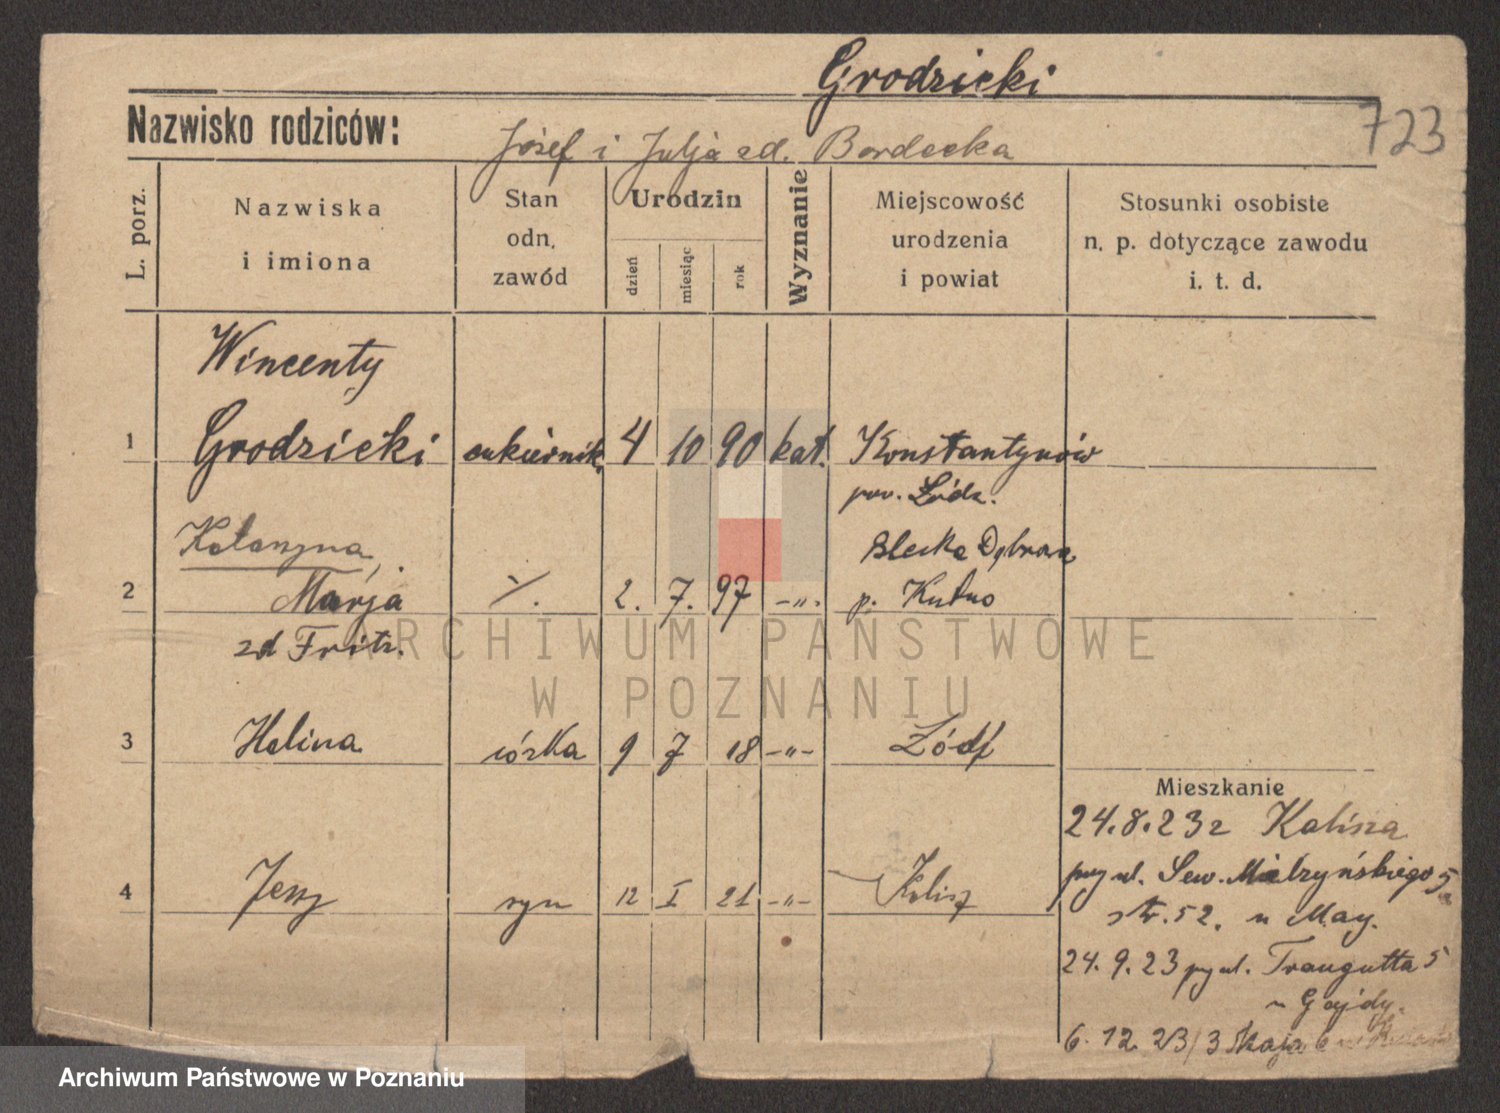 Grodzicki
Nazwisko rodziców:
Józef i Julja zd. Bordecka
723
L. porz.
Nazwiska
i imiona
Stan
odn.
zawód
Urodzin
dzień
miesiąc
rok
Wyznanie
Miejscowość
urodzenia
i powiat
Stosunki osobiste
n. p. dotyczące zawodu
i. t. d.
Wincenty
1 Grodzicki cukiernik 4 10 90 kat. Konstantynów
pow. Łódz.
Katarzyna,
Dąbrowa
2 Marja 2. 7. 97 -„- p. Kutno
zd Fritz.
ARCHIWUM PAŃSTWOWE
W POZNANIU
3 Halina córka 9 7 18 -„- Łódź
Mieszkanie
24.8.23 z Kalisza
przy ul. Sew. Mielżyńskiego 5
str. 52. u May.
4 Jerzy syn 12 I 21 -„- Kalisz
24. 9. 23 przy ul. Traugutta 5
u Gajdy.
6. 12. 23 / 3 Maja 6
Archiwum Państwowe w Poznaniu